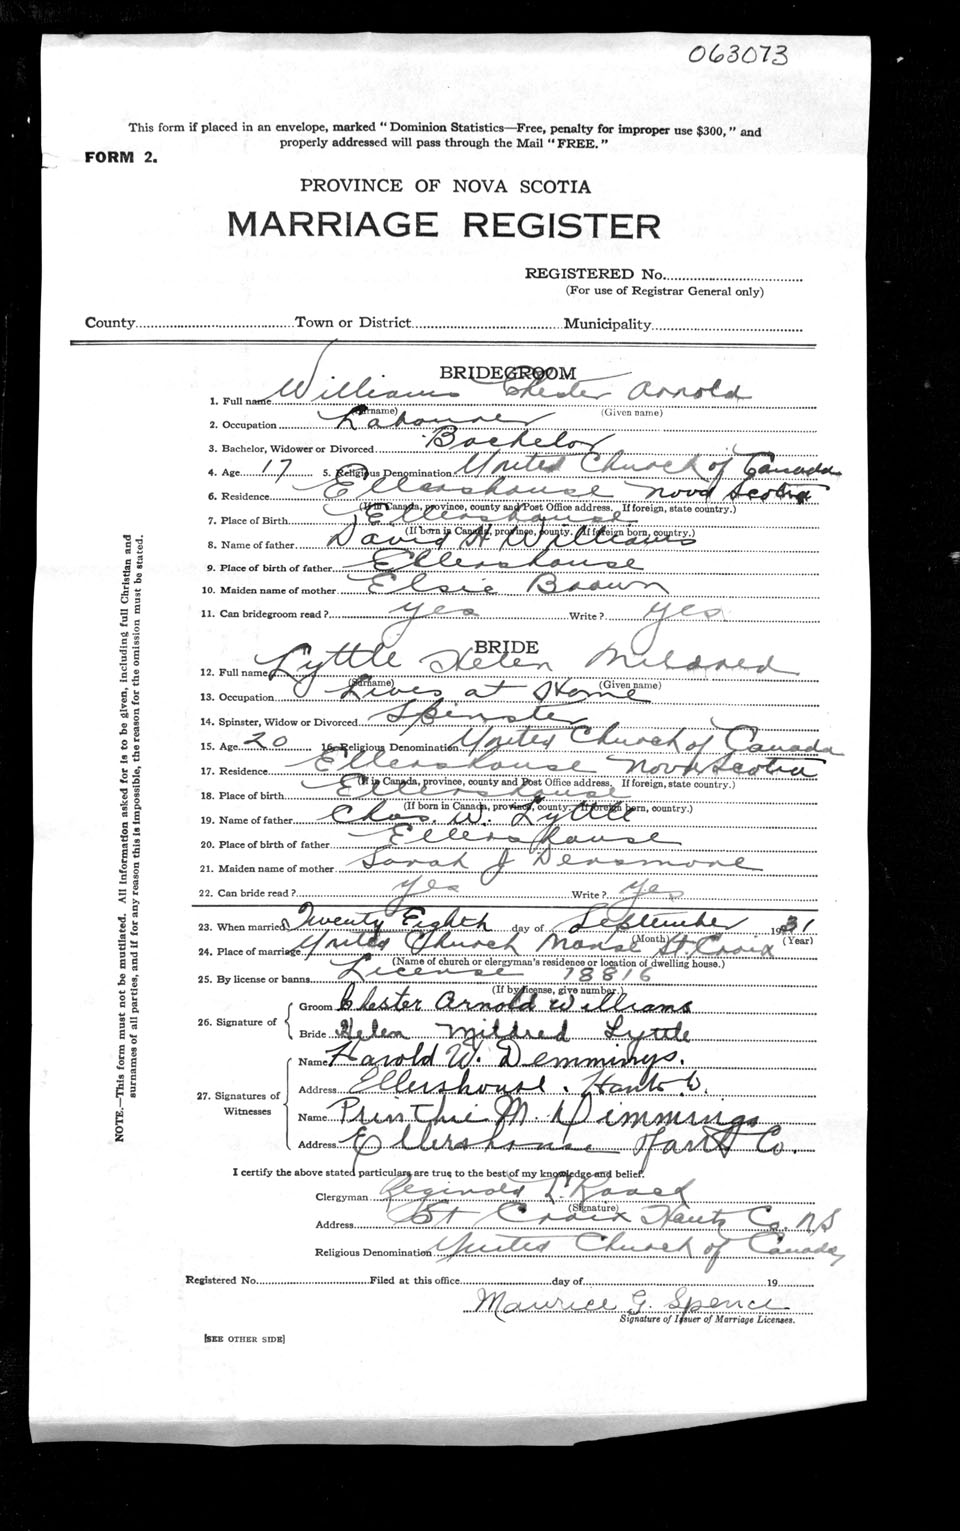 063073
This form if placed in an envelope, marked "Dominion Statistics—Free, penalty for improper use $300," and
properly addressed will pass through the Mail "FREE."
FORM 2.
PROVINCE OF NOVA SCOTIA
MARRIAGE REGISTER
REGISTERED No.
(For use of Registrar General only)
County Town or District Municipality
BRIDEGROOM
1. Full name Williams Chester Arnold
(Surname) (Given name)
2. Occupation Labourer
3. Bachelor, Widower or Divorced Bachelor
4. Age 17 5. Religious Denomination United Church of Canada
6. Residence Ellershouse Nova Scotia
(If in Canada, province, county and Post Office address. If foreign, state country.)
7. Place of Birth Ellershouse
(If born in Canada, province, county. If foreign born, country.)
8. Name of father David H Williams
9. Place of birth of father Ellershouse
10. Maiden name of mother Elsie Brown
11. Can bridegroom read? yes Write? yes
BRIDE
12. Full name Lyttle Helen Mildred
(Surname) (Given name)
13. Occupation Lives at Home
14. Spinster, Widow or Divorced Spinster
15. Age 20 16. Religious Denomination United Church of Canada
17. Residence Ellershouse Nova Scotia
(If in Canada, province, county and Post Office address. If foreign, state country.)
18. Place of birth Ellershouse
(If born in Canada, province, county. If foreign born, country.)
19. Name of father Chas. W. Lyttle
20. Place of birth of father Ellershouse
21. Maiden name of mother Sarah J Densmore
22. Can bride read? yes Write? yes
23. When married Twenty Eighth day of September 1931
(Month) (Year)
24. Place of marriage United Church Manse St. Croix
(Name of church or clergyman's residence or location of dwelling house.)
25. By license or banns License 18816
(If by license, give number.)
26. Signature of Groom Chester Arnold Williams
Bride Helen Mildred Lyttle
27. Signatures of Witnesses Name Harold W. Demmings.
Address Ellershouse. Hants Co.
Name M. Dimmings
Address Ellershouse Hants Co.
I certify the above stated particulars are true to the best of my knowledge and belief.
Clergyman Reginald
(Signature)
Address St Croix Hants Co. N.S
Religious Denomination United Church of Canada
Registered No. Filed at this office day of 19
Maurice G. Spence
Signature of Issuer of Marriage Licenses.
[SEE OTHER SIDE]
NOTE.—This form must not be mutilated. All Information asked for is to be given, including full Christian and
surnames of all parties, and if for any reason this is impossible, the reason for the omission must be stated.